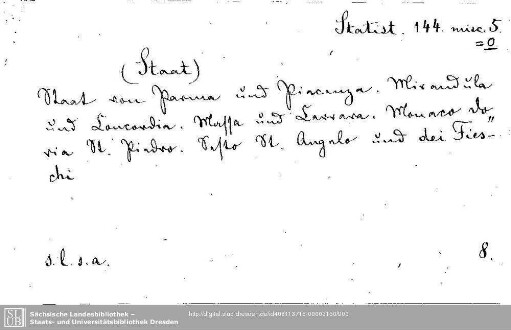 Statist. 144. misc. 5.
= 0
(Staat)
Staat von Parma und Piacenza. Mirandula
und Concordia. Massa und Carrara. Monaco Do-
ria St. Piedro. Sesto St. Angelo und dei Fies-
chi
s.l.s.a.
8.
Sächsische Landesbibliothek –
Staats- und Universitätsbibliothek Dresden